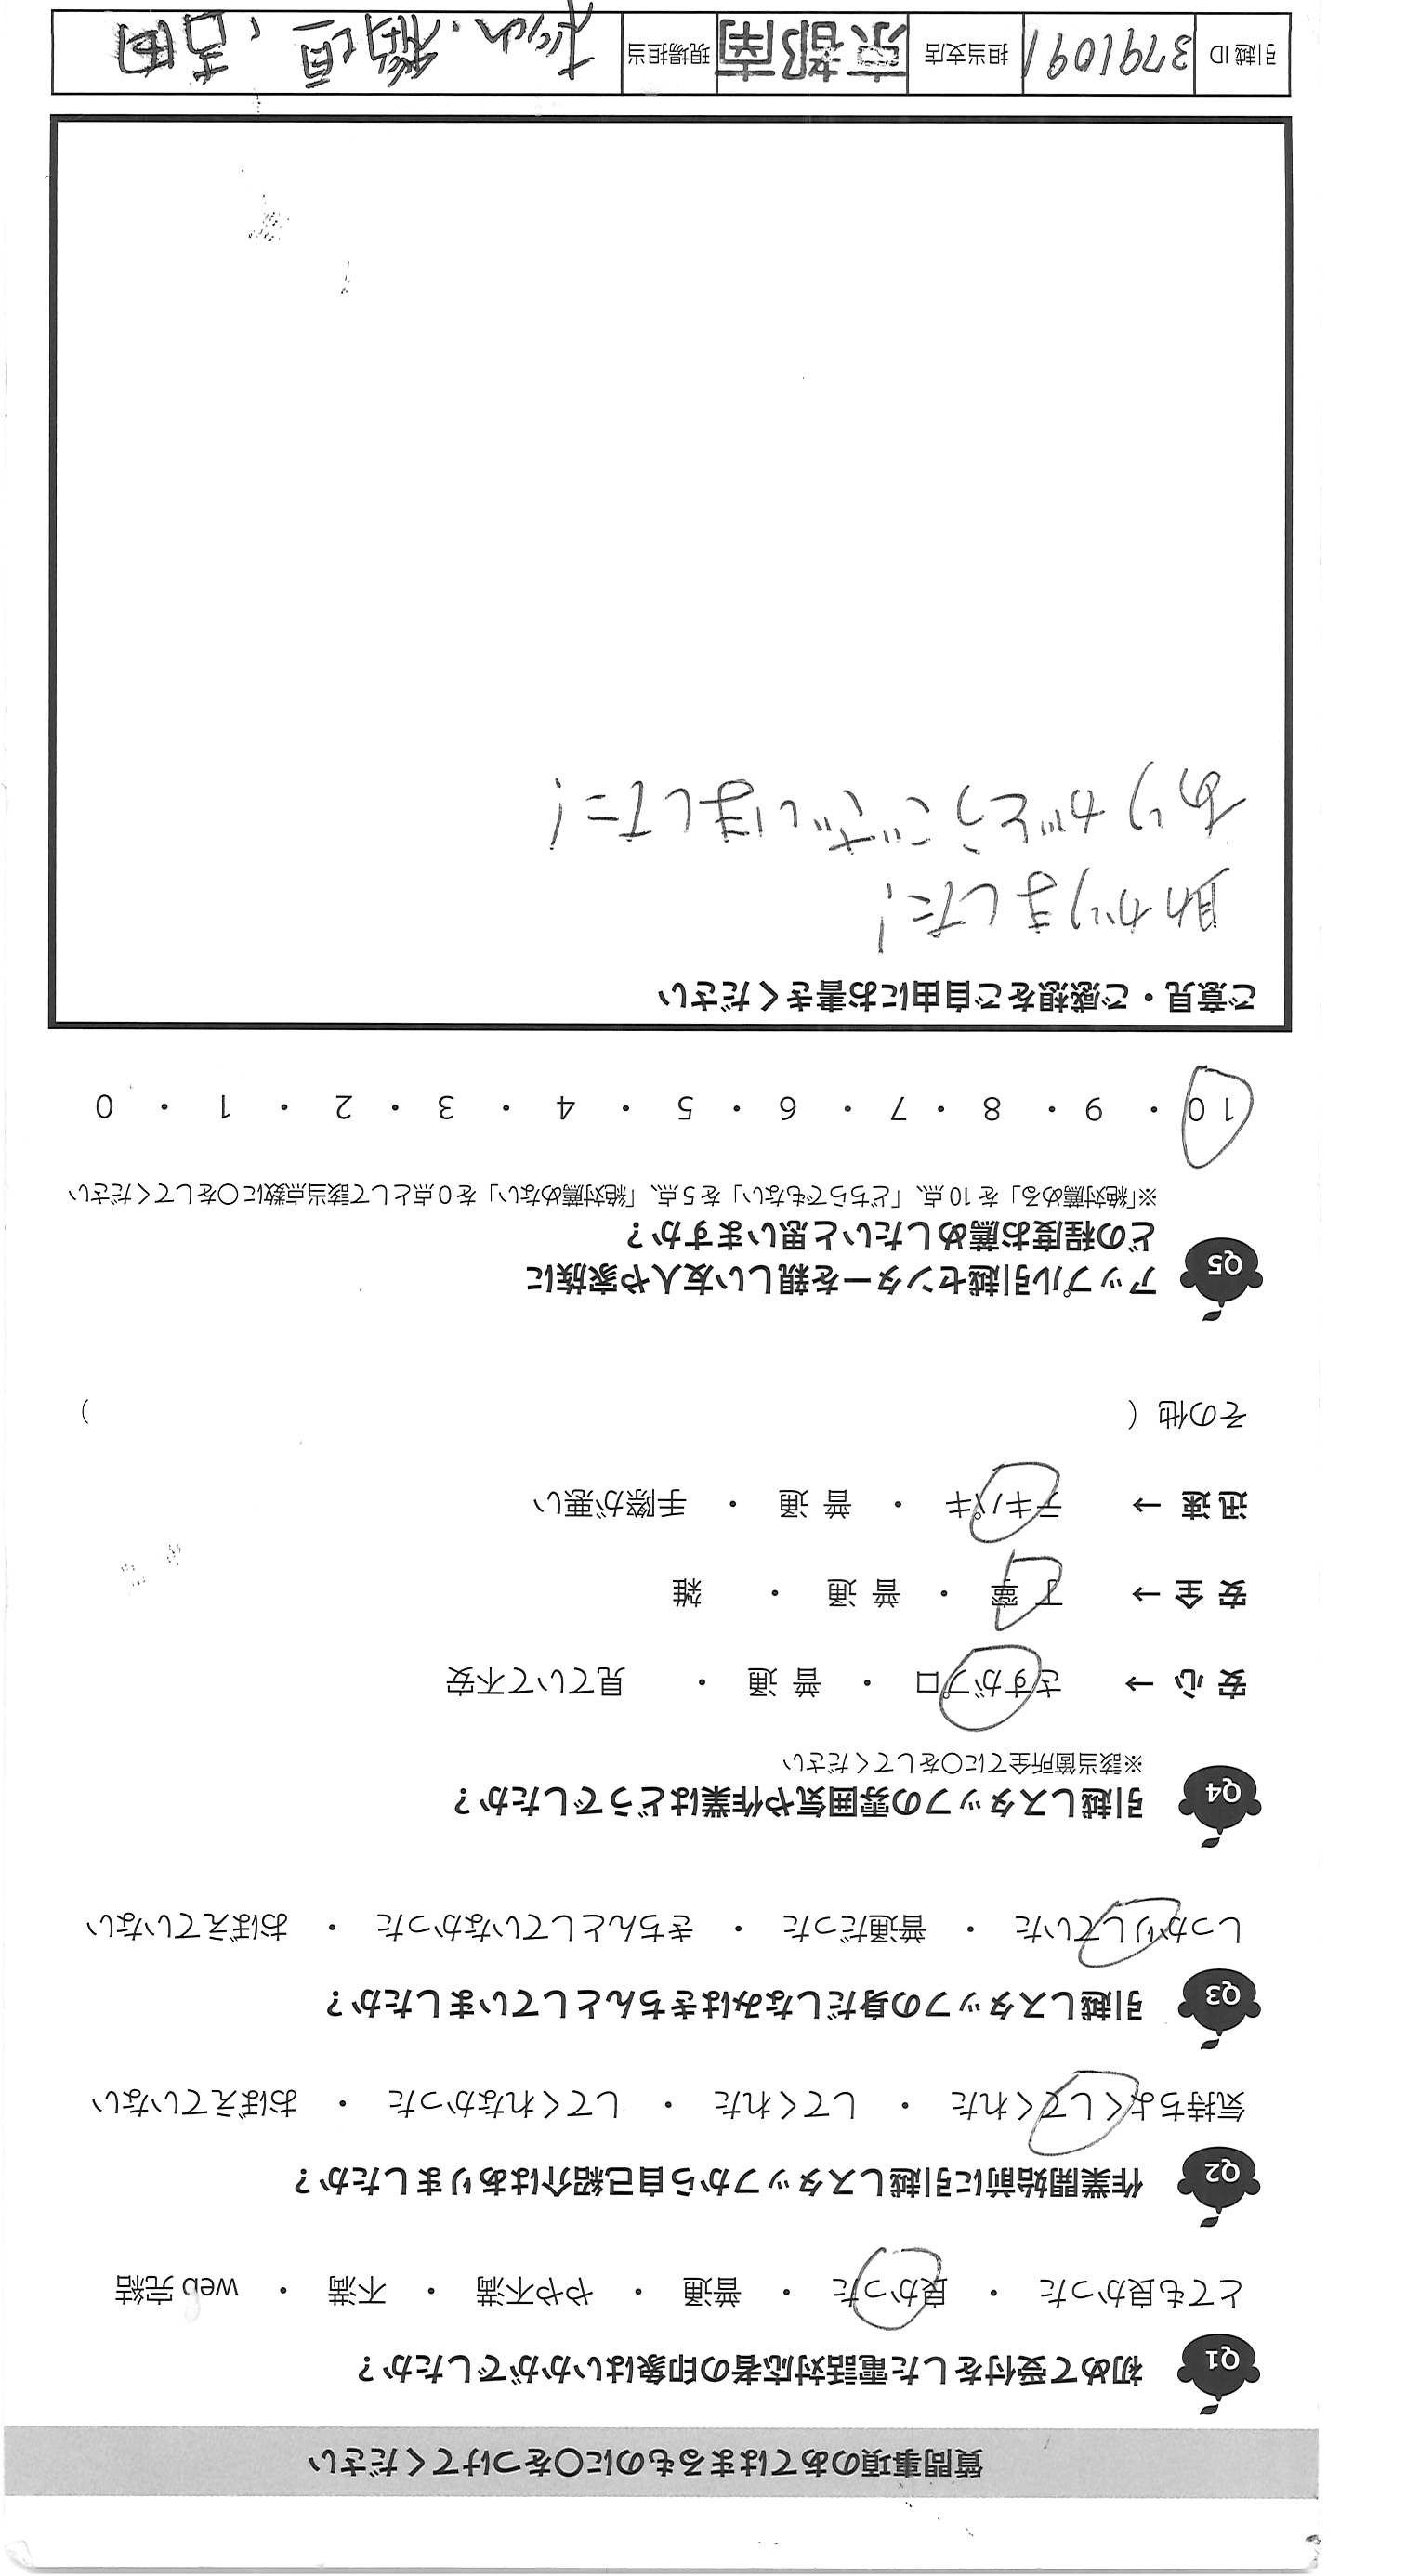 質問事項のあてはまるものに〇をつけてください
Q1 初めて受付をした電話対応者の印象はいかがでしたか？
とても良かった ・ 良かった ・ 普通 ・ やや不満 ・ 不満 ・ web 完結
Q2 作業開始前に引越しスタッフから自己紹介はありましたか？
気持ちよくしてくれた ・ してくれた ・ してくれなかった ・ おぼえていない
Q3 引越しスタッフの身だしなみはきちんとしていましたか？
しっかりしていた ・ 普通だった ・ きちんとしていなかった ・ おぼえていない
Q4 引越しスタッフの雰囲気や作業はどうでしたか？
※該当箇所全てに〇をしてください
安 心 → さすがプロ ・ 普 通 ・ 見ていて不安
安 全 → 丁 寧 ・ 普 通 ・ 雑
迅 速 → テキパキ ・ 普 通 ・ 手際が悪い
その他（ ）
Q5 アップル引越センターを親しい友人や家族に
どの程度お薦めしたいと思いますか？
※「絶対薦める」を 10 点、「どちらでもない」を 5 点、「絶対薦めない」を 0 点として該当点数に〇をしてください
10 ・ 9 ・ 8 ・ 7 ・ 6 ・ 5 ・ 4 ・ 3 ・ 2 ・ 1 ・ 0
ご意見・ご感想をご自由にお書きください
助かりました！
ありがとうございました！
引越 ID 3791091 担当支店 京都南 現場担当 稲垣、吉田